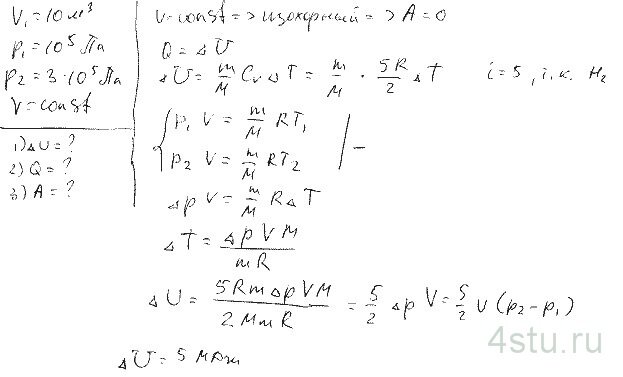 V₁ = 10 м³
p₁ = 10⁵ Па
p₂ = 3·10⁵ Па
V = const
1) ΔU = ?
2) Q = ?
3) A = ?
V = const => изохорный => A = 0
Q = ΔU
ΔU = m/M C_V ΔT = m/M · 5R/2 ΔT i = 5, т.к. H₂
p₁ V = m/M RT₁
p₂ V = m/M RT₂
Δp V = m/M R ΔT
ΔT = ΔpVM/mR
ΔU = 5RmΔpVM/2MmR = 5/2 Δp V = 5/2 V (p₂ - p₁)
ΔU = 5 МДж
4stu.ru